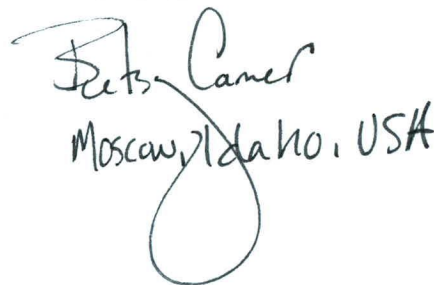 Betsy Carver
Moscow, Idaho, USA